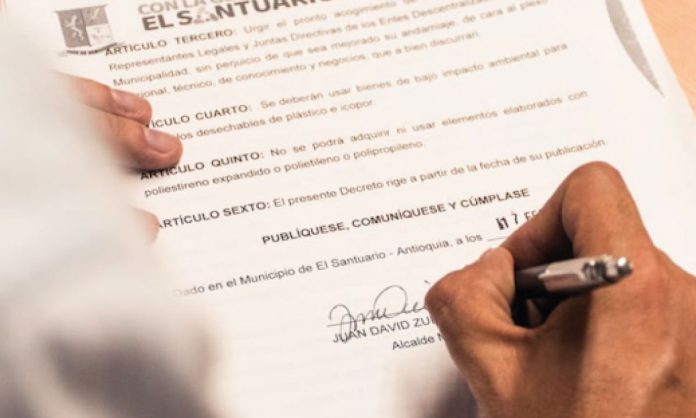 CON LA
EL SANTUARIO
ARTÍCULO TERCERO: Urgir el pronto acogimiento
Representantes Legales y Juntas Directivas de los Entes Descentraliz
Municipalidad, sin perjuicio de que sea mejorado su andamiaje, de cara al plexo
ional, técnico, de conocimiento y negocios, que a bien discurran.
TÍCULO CUARTO: Se deberán usar bienes de bajo impacto ambiental para
los desechables de plástico e icopor.
ARTÍCULO QUINTO: No se podrá adquirir ni usar elementos elaborados con
poliestireno expandido o polietileno o polipropileno.
ARTÍCULO SEXTO: El presente Decreto rige a partir de la fecha de su publicación
PUBLÍQUESE, COMUNÍQUESE Y CÚMPLASE
Dado en el Municipio de El Santuario - Antioquia, a los 17 FE
JUAN DAVID ZU
Alcalde M